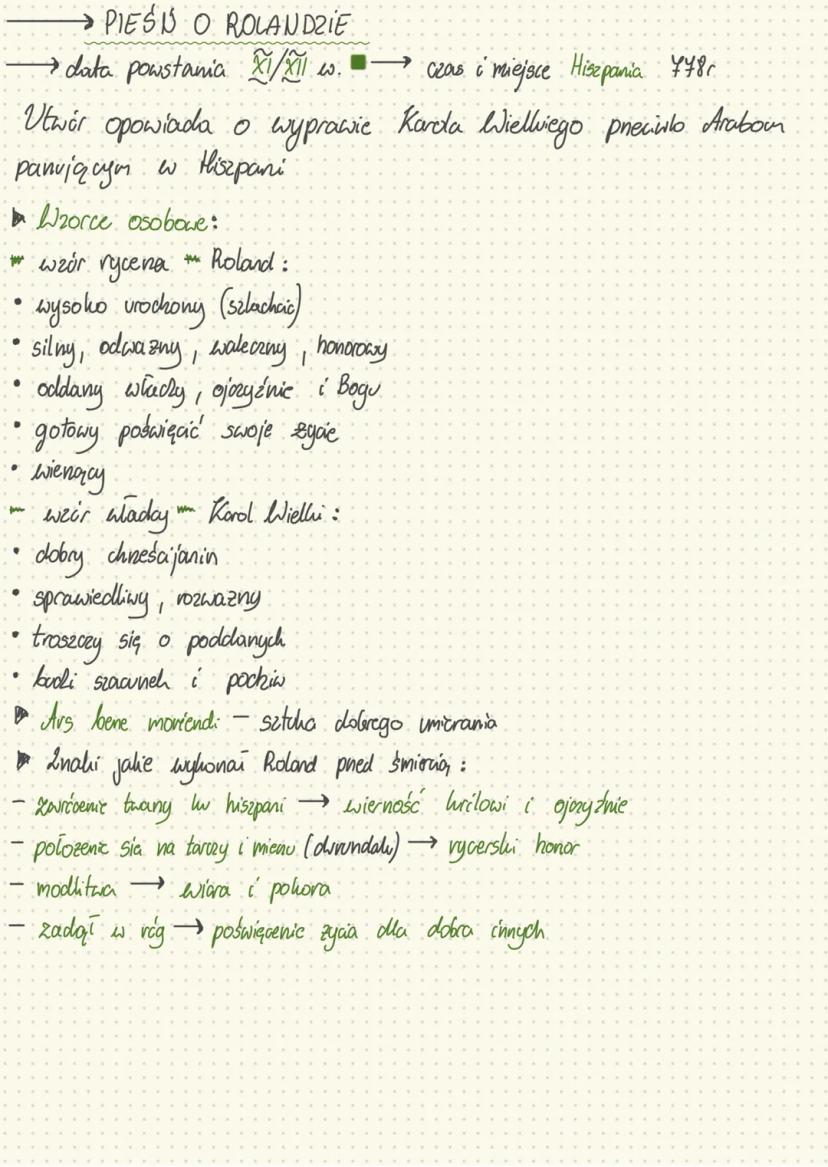 → PIEŚŃ O ROLANDZIE
→ data powstania XI/XII w. → czas i miejsce Hiszpania 778r
Utwór opowiada o wyprawie Karola Wielkiego przeciwko Arabom
panującym w Hiszpani
Wzorce osobowe:
- wzór rycerza - Roland:
• wysoko urodzony (szlachcic)
• silny, odważny, waleczny, honorowy
• oddany władcy, ojczyźnie i Bogu
• gotowy poświęcić swoje życie
• wierzący
- wzór władcy - Karol Wielki:
• dobry chrześcijanin
• sprawiedliwy, rozważny
• troszczy się o poddanych
• budzi szacunek i podziw
Ars bene moriendi - sztuka dobrego umierania
Znaki jakie wykonał Roland przed śmiercią:
- zwrócenie twarzy ku hiszpani → wierność królowi i ojczyźnie
- położenie sia na tarczy i mieczu (durundalu) → rycerski honor
- modlitwa → wiara i pokora
- zadął w róg → poświęcenie życia dla dobra innych